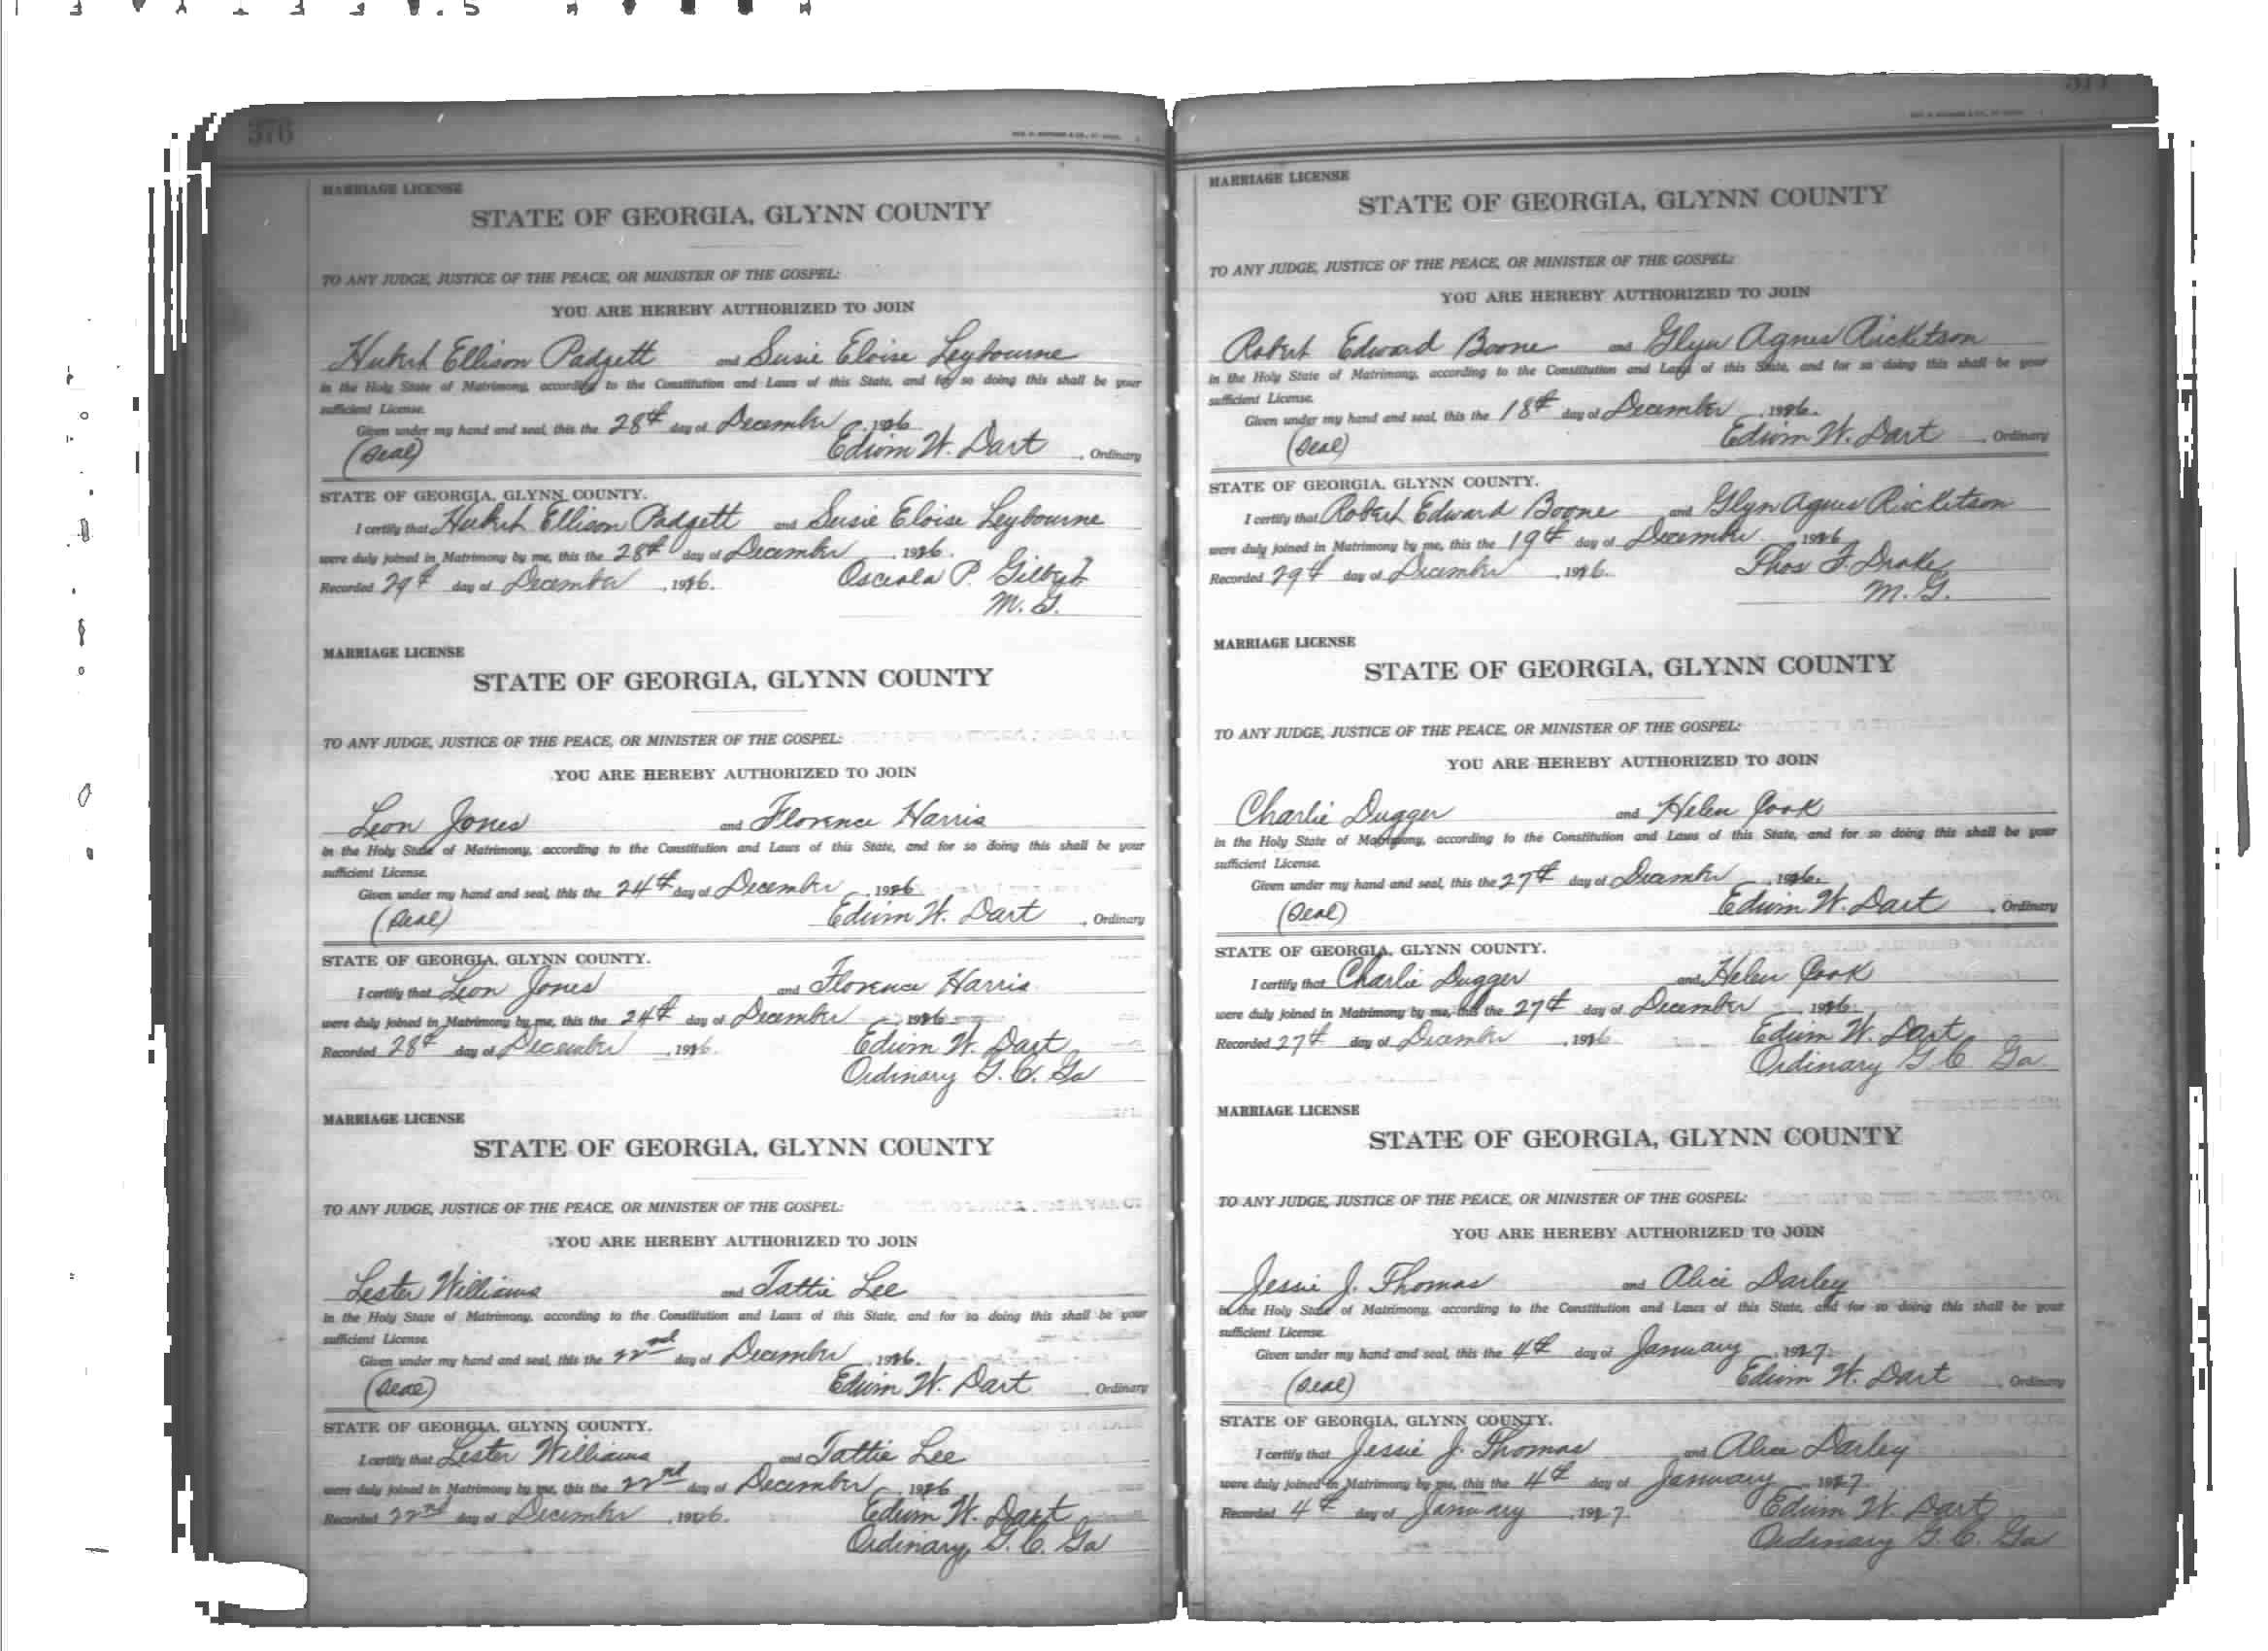 376
MARRIAGE LICENSE
STATE OF GEORGIA, GLYNN COUNTY
TO ANY JUDGE, JUSTICE OF THE PEACE, OR MINISTER OF THE GOSPEL:
YOU ARE HEREBY AUTHORIZED TO JOIN
Hubert Ellison Padgett and Susie Eloise Leybourne
in the Holy State of Matrimony, according to the Constitution and Laws of this State, and for so doing this shall be your
sufficient License.
Given under my hand and seal, this the 28th day of December, 1926
(Seal) Edwin W. Dart, Ordinary
STATE OF GEORGIA, GLYNN COUNTY.
I certify that Hubert Ellison Padgett and Susie Eloise Leybourne
were duly joined in Matrimony by me, this the 28th day of December, 1926.
Recorded 29th day of December, 1926. Osceola P. Gilbert
M. G.
MARRIAGE LICENSE
STATE OF GEORGIA, GLYNN COUNTY
TO ANY JUDGE, JUSTICE OF THE PEACE, OR MINISTER OF THE GOSPEL:
YOU ARE HEREBY AUTHORIZED TO JOIN
Leon Jones and Florence Harris
in the Holy State of Matrimony, according to the Constitution and Laws of this State, and for so doing this shall be your
sufficient License.
Given under my hand and seal, this the 24th day of December, 1926
(Seal) Edwin W. Dart, Ordinary
STATE OF GEORGIA, GLYNN COUNTY.
I certify that Leon Jones and Florence Harris
were duly joined in Matrimony by me, this the 24th day of December, 1926
Recorded 28th day of December, 1926. Edwin W. Dart
Ordinary G. C. Ga
MARRIAGE LICENSE
STATE OF GEORGIA, GLYNN COUNTY
TO ANY JUDGE, JUSTICE OF THE PEACE, OR MINISTER OF THE GOSPEL:
YOU ARE HEREBY AUTHORIZED TO JOIN
Lester Williams and Tattie Lee
in the Holy State of Matrimony, according to the Constitution and Laws of this State, and for so doing this shall be your
sufficient License.
Given under my hand and seal, this the 22nd day of December, 1926.
(Seal) Edwin W. Dart, Ordinary
STATE OF GEORGIA, GLYNN COUNTY.
I certify that Lester Williams and Tattie Lee
were duly joined in Matrimony by me, this the 22nd day of December, 1926
Recorded 22nd day of December, 1926. Edwin W. Dart
Ordinary, G. C. Ga
377
MARRIAGE LICENSE
STATE OF GEORGIA, GLYNN COUNTY
TO ANY JUDGE, JUSTICE OF THE PEACE, OR MINISTER OF THE GOSPEL:
YOU ARE HEREBY AUTHORIZED TO JOIN
Robert Edward Boone and Glyn Agnes Ricketson
in the Holy State of Matrimony, according to the Constitution and Laws of this State, and for so doing this shall be your
sufficient License.
Given under my hand and seal, this the 18th day of December, 1926.
(Seal) Edwin W. Dart, Ordinary
STATE OF GEORGIA, GLYNN COUNTY.
I certify that Robert Edward Boone and Glyn Agnes Ricketson
were duly joined in Matrimony by me, this the 19th day of December, 1926
Recorded 29th day of December, 1926. Thos F. Drake
M. G.
MARRIAGE LICENSE
STATE OF GEORGIA, GLYNN COUNTY
TO ANY JUDGE, JUSTICE OF THE PEACE, OR MINISTER OF THE GOSPEL:
YOU ARE HEREBY AUTHORIZED TO JOIN
Charlie Dugger and Helen Cook
in the Holy State of Matrimony, according to the Constitution and Laws of this State, and for so doing this shall be your
sufficient License.
Given under my hand and seal, this the 27th day of December, 1926.
(Seal) Edwin W. Dart, Ordinary
STATE OF GEORGIA, GLYNN COUNTY.
I certify that Charlie Dugger and Helen Cook
were duly joined in Matrimony by me, this the 27th day of December, 1926.
Recorded 27th day of December, 1926 Edwin W. Dart
Ordinary G. C. Ga.
MARRIAGE LICENSE
STATE OF GEORGIA, GLYNN COUNTY
TO ANY JUDGE, JUSTICE OF THE PEACE, OR MINISTER OF THE GOSPEL:
YOU ARE HEREBY AUTHORIZED TO JOIN
Jessie J. Thomas and Alice Darley
in the Holy State of Matrimony, according to the Constitution and Laws of this State, and for so doing this shall be your
sufficient License.
Given under my hand and seal, this the 4th day of January, 1927.
(Seal) Edwin W. Dart, Ordinary
STATE OF GEORGIA, GLYNN COUNTY.
I certify that Jessie J. Thomas and Alice Darley
were duly joined in Matrimony by me, this the 4th day of January, 1927.
Recorded 4th day of January, 1927. Edwin W. Dart
Ordinary G. C. Ga